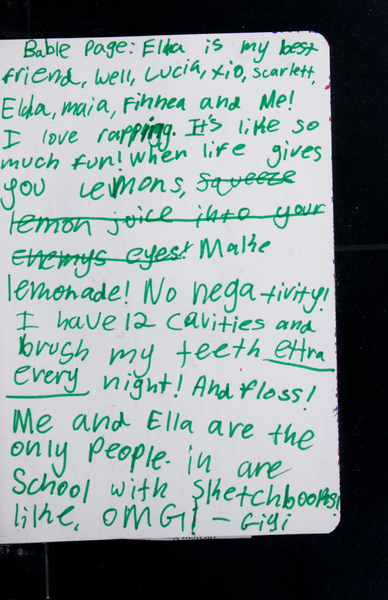 Bable Page: Ella is my best
friend, well, Lucia, xio, scarlett,
Elda, maia, Finnea and Me!
I love rapping. It's like so
much fun! When life gives
you lemons, squeeze
lemon joice into your
enemys eyes! Make
lemonade! No negativity!
I have 12 cavities and
brush my teeth ettra
every night! And floss!
Me and Ella are the
only people in are
School with Sketchbooks!
like, OMG! - Gigi